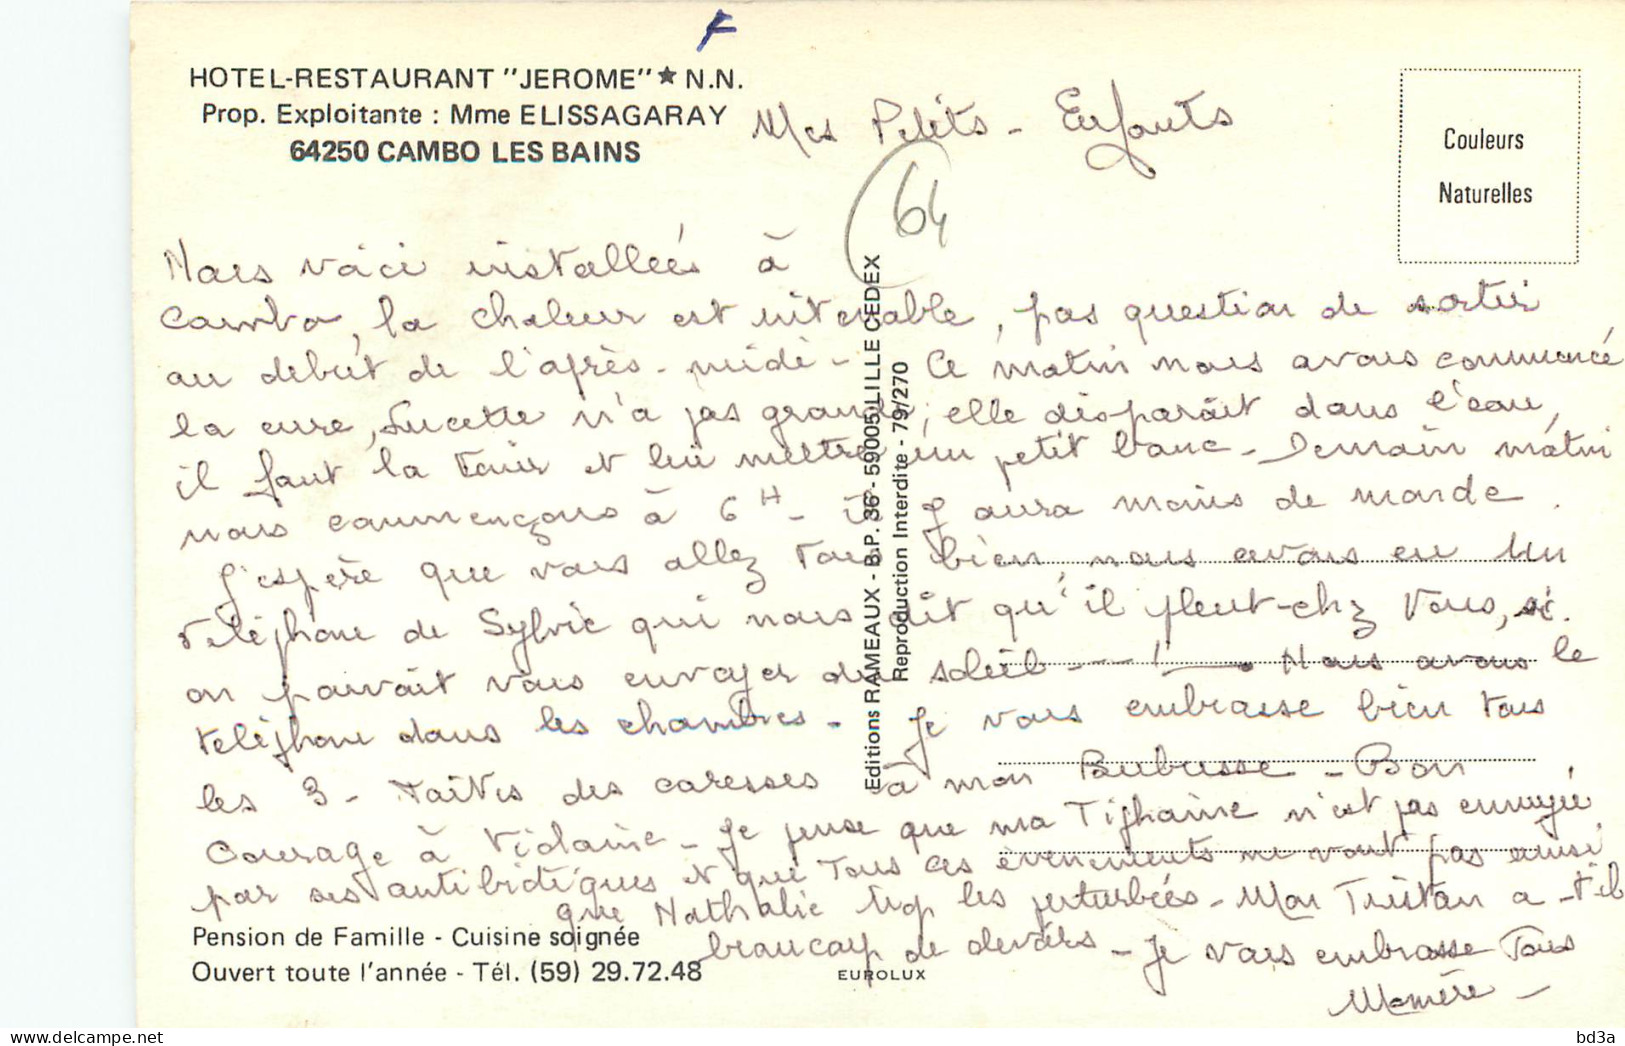 HOTEL-RESTAURANT "JEROME" ★ N.N.
Prop. Exploitante : Mme ELISSAGARAY
64250 CAMBO LES BAINS
Couleurs
Naturelles
Mes Petits - Enfants
64
Nous voici installées à
Cambo, la chaleur est intenable, pas question de sortir
au debut de l'après-midi - Ce matin nous avons commencé
la cure, Lucette n'a pas grandi, elle disparait dans l'eau,
il faut la tenir et lui mettre un petit banc - Demain matin
nous commençons à 6H - il y aura moins de monde.
J'espère que vous allez tous bien nous avons eu un
téléphone de Sylvie qui nous dit qu'il pleut chez vous, si
on pouvait vous envoyer du soleil ---! Nous avons le
teléphone dans les chambres - Je vous embrasse bien tous
les 3 - Faites des caresses à mon Bubusse - Bon
Courage à Violaine - Je pense que ma Tiphaine n'est pas ennuyée
par ses antibiotiques et que tous ces évenements ne vont pas ainsi
que Nathalie trop les perturbées - Mon Tristan a-t-il
beaucoup de devoirs - Je vous embrasse Tous
Mamére -
Editions RAMEAUX - B.P. 36 - 59005 LILLE CEDEX
Reproduction Interdite - 79/270
Pension de Famille - Cuisine soignée
Ouvert toute l'année - Tél. (59) 29.72.48
EUROLUX
www.delcampe.net
bd3a